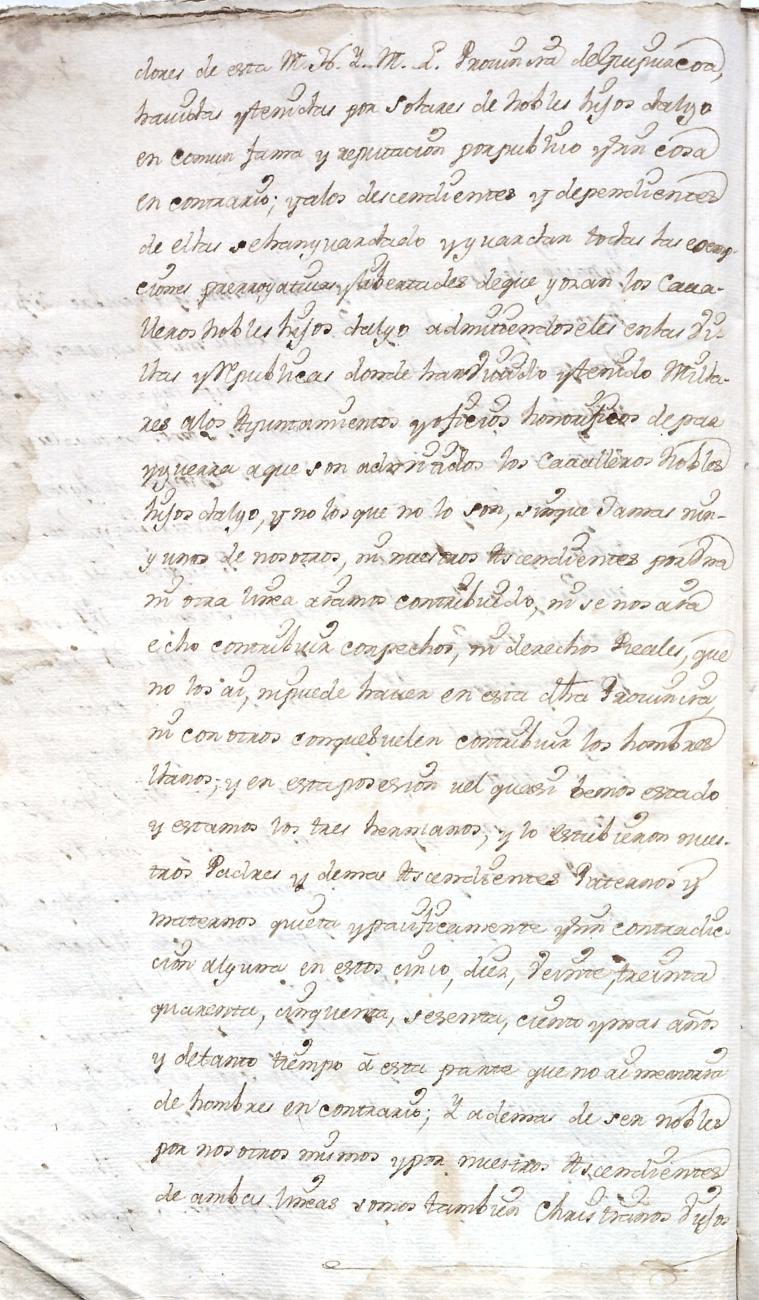 dores de esta M. N. Y. M. L. Provincia de Guipuzcoa,
havidas y tenidas por solares de nobles hijos dalgo
en comun fama y reputacion por publico y sin cosa
en contrario; y alos descendientes y dependientes
de ellas se han guardado y guardan todas las exemp-
ciones prerrogativas y libertades de que gozan los Cava-
lleros nobles hijos dalgo admitiendoseles en las Vi-
llas y Republicas donde han vivido y tenido Milla-
res alos Ayuntamientos y oficios honorificos de paz
y guerra a que son admitidos los Cavalleros nobles
hijos dalgo, y no los que no lo son, sin que Jamas nin-
gunos de nosotros, ni nuestros Ascendientes por Una
ni otra linea aiamos contribuido, ni se nos aia
echo contribuir con pechos, ni derechos Reales, que
no los ai, ni puede haver en esta dha Provincia,
ni con otros con que suelen contribuir los hombres
llanos; y en esta posesion vel quasi hemos estado
y estamos los tres hermanos, y lo estubieron nues-
tros Padres y demas Ascendientes Paternos y
maternos quieta y pacificamente y sin contradic-
cion alguna en estos cinco, diez, Veinte, treinta
quarenta, cinquenta, sesenta, ciento y mas años
y de tanto tiempo â esta parte que no ai memoria
de hombres en contrario; Y ademas de ser nobles
por nosotros mismos y por nuestros Ascendientes
de ambas lineas somos tambien Christianos Viejos